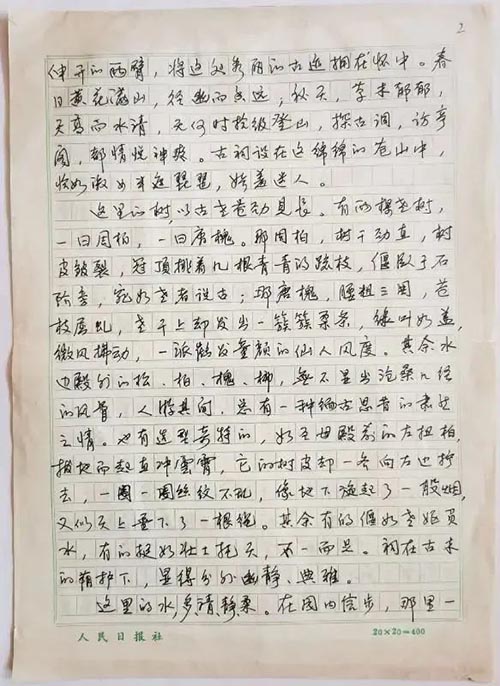 2
伸开的两臂，将这处秀丽的古迹拥在怀中。春
日黄花满山，径幽而香远；秋天，草木郁郁，
天高而水清，无何时拾级登山，探古洞，访亭
阁，都情悦神爽。古祠设在这绵绵的苍山中，
恰如淑女半遮琵琶，娇羞迷人。
这里的树，以古老苍劲见长。有两棵老树，
一曰周柏，一曰唐槐。那周柏，树干劲直，树
皮皱裂，冠顶挑着几根青青的疏枝，偃卧于石
阶旁，宛如老者说古；那唐槐，腰粗三围，苍
枝屈虬，老干上却发出一簇簇柔条，绿叶如盖，
微风拂动，一派鹤发童颜的仙人风度。其余水
边殿外的松、柏、槐、柳，无不显出沧桑几经
的风骨，人游其间，总有一种缅古思昔的肃然
之情。也有造型奇特的，如圣母殿前的左扭柏，
拔地而起直冲云霄，它的树皮却一齐向左边拧
去，一圈一圈丝纹不乱，像地下旋起了一股烟，
又似天上垂下了一根绳。其余有的偃如老妪负
水，有的挺如壮士托天，不一而足。祠在古木
的荫护下，显得分外幽静、典雅。
这里的水，多、清、静、柔。在园内信步，那里一
人民日报社 20×20=400